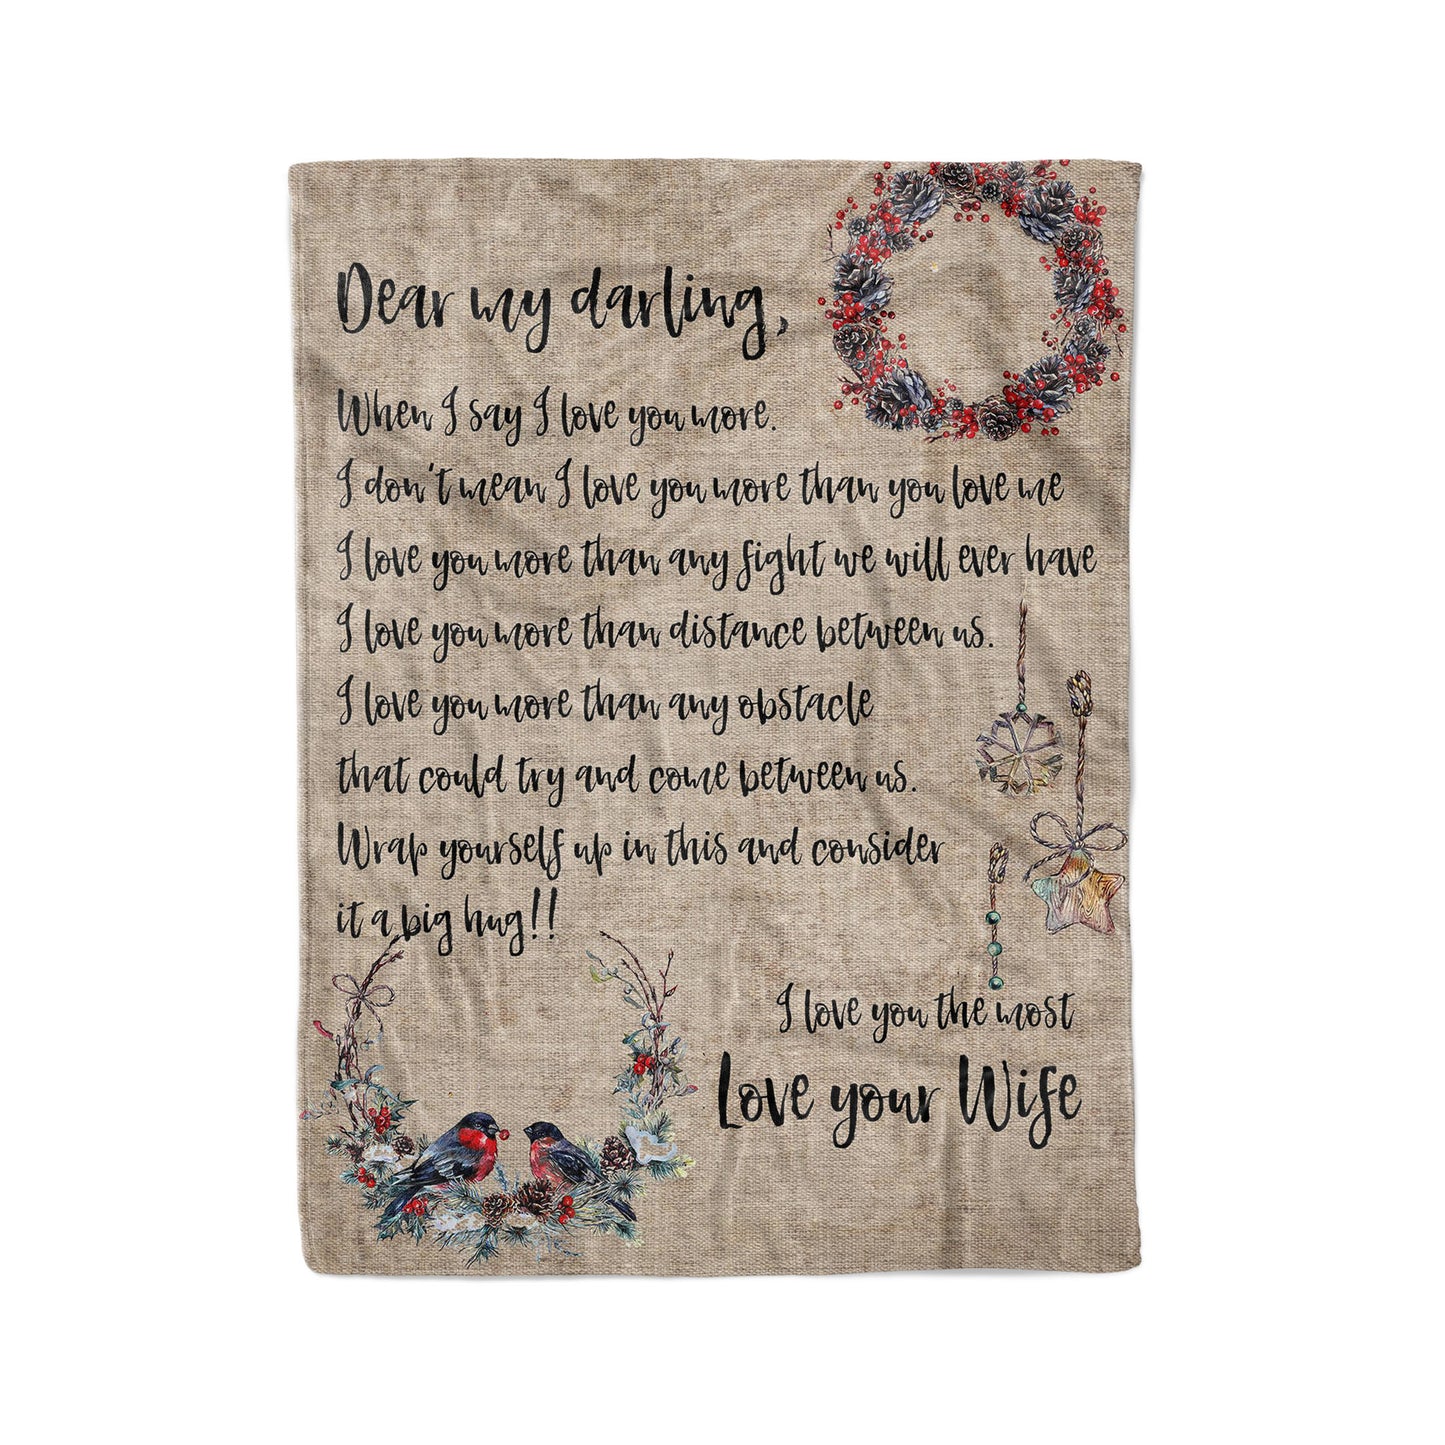 Dear my darling,
When I say I love you more.
I don't mean I love you more than you love me
I love you more than any fight we will ever have
I love you more than distance between us.
I love you more than any obstacle
that could try and come between us.
Wrap yourself up in this and consider
it a big hug!!
I love you the most
Love your Wife